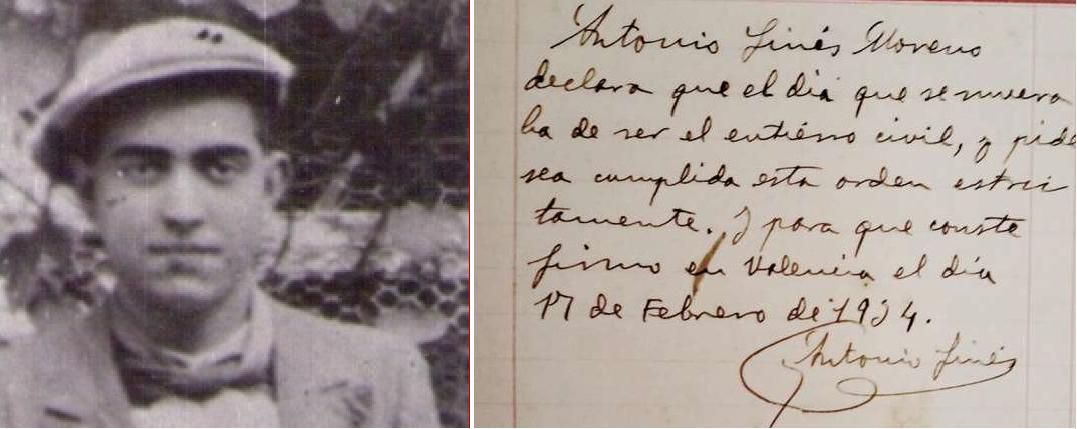 Antonio Ginés Moreno
declara que el dia que se muera
ha de ser el entierro civil, y pide
sea cumplida esta orden estric
tamente. Y para que conste
firmo en Valencia el día
17 de Febrero de 1934.
Antonio Ginés